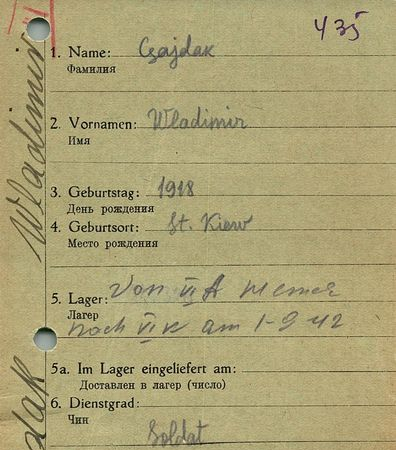 435
1. Name: Czajdak
Фамилия
2. Vornamen: Wladimir
Имя
3. Geburtstag: 1918
День рождения
4. Geburtsort: St. Kiew
Место рождения
5. Lager: Von VI A Hemer
Лагер
nach VI K am 1-9 42
5a. Im Lager eingeliefert am:
Доставлен в лагер (число)
6. Dienstgrad:
Чин
Soldat
Wladimir
dak